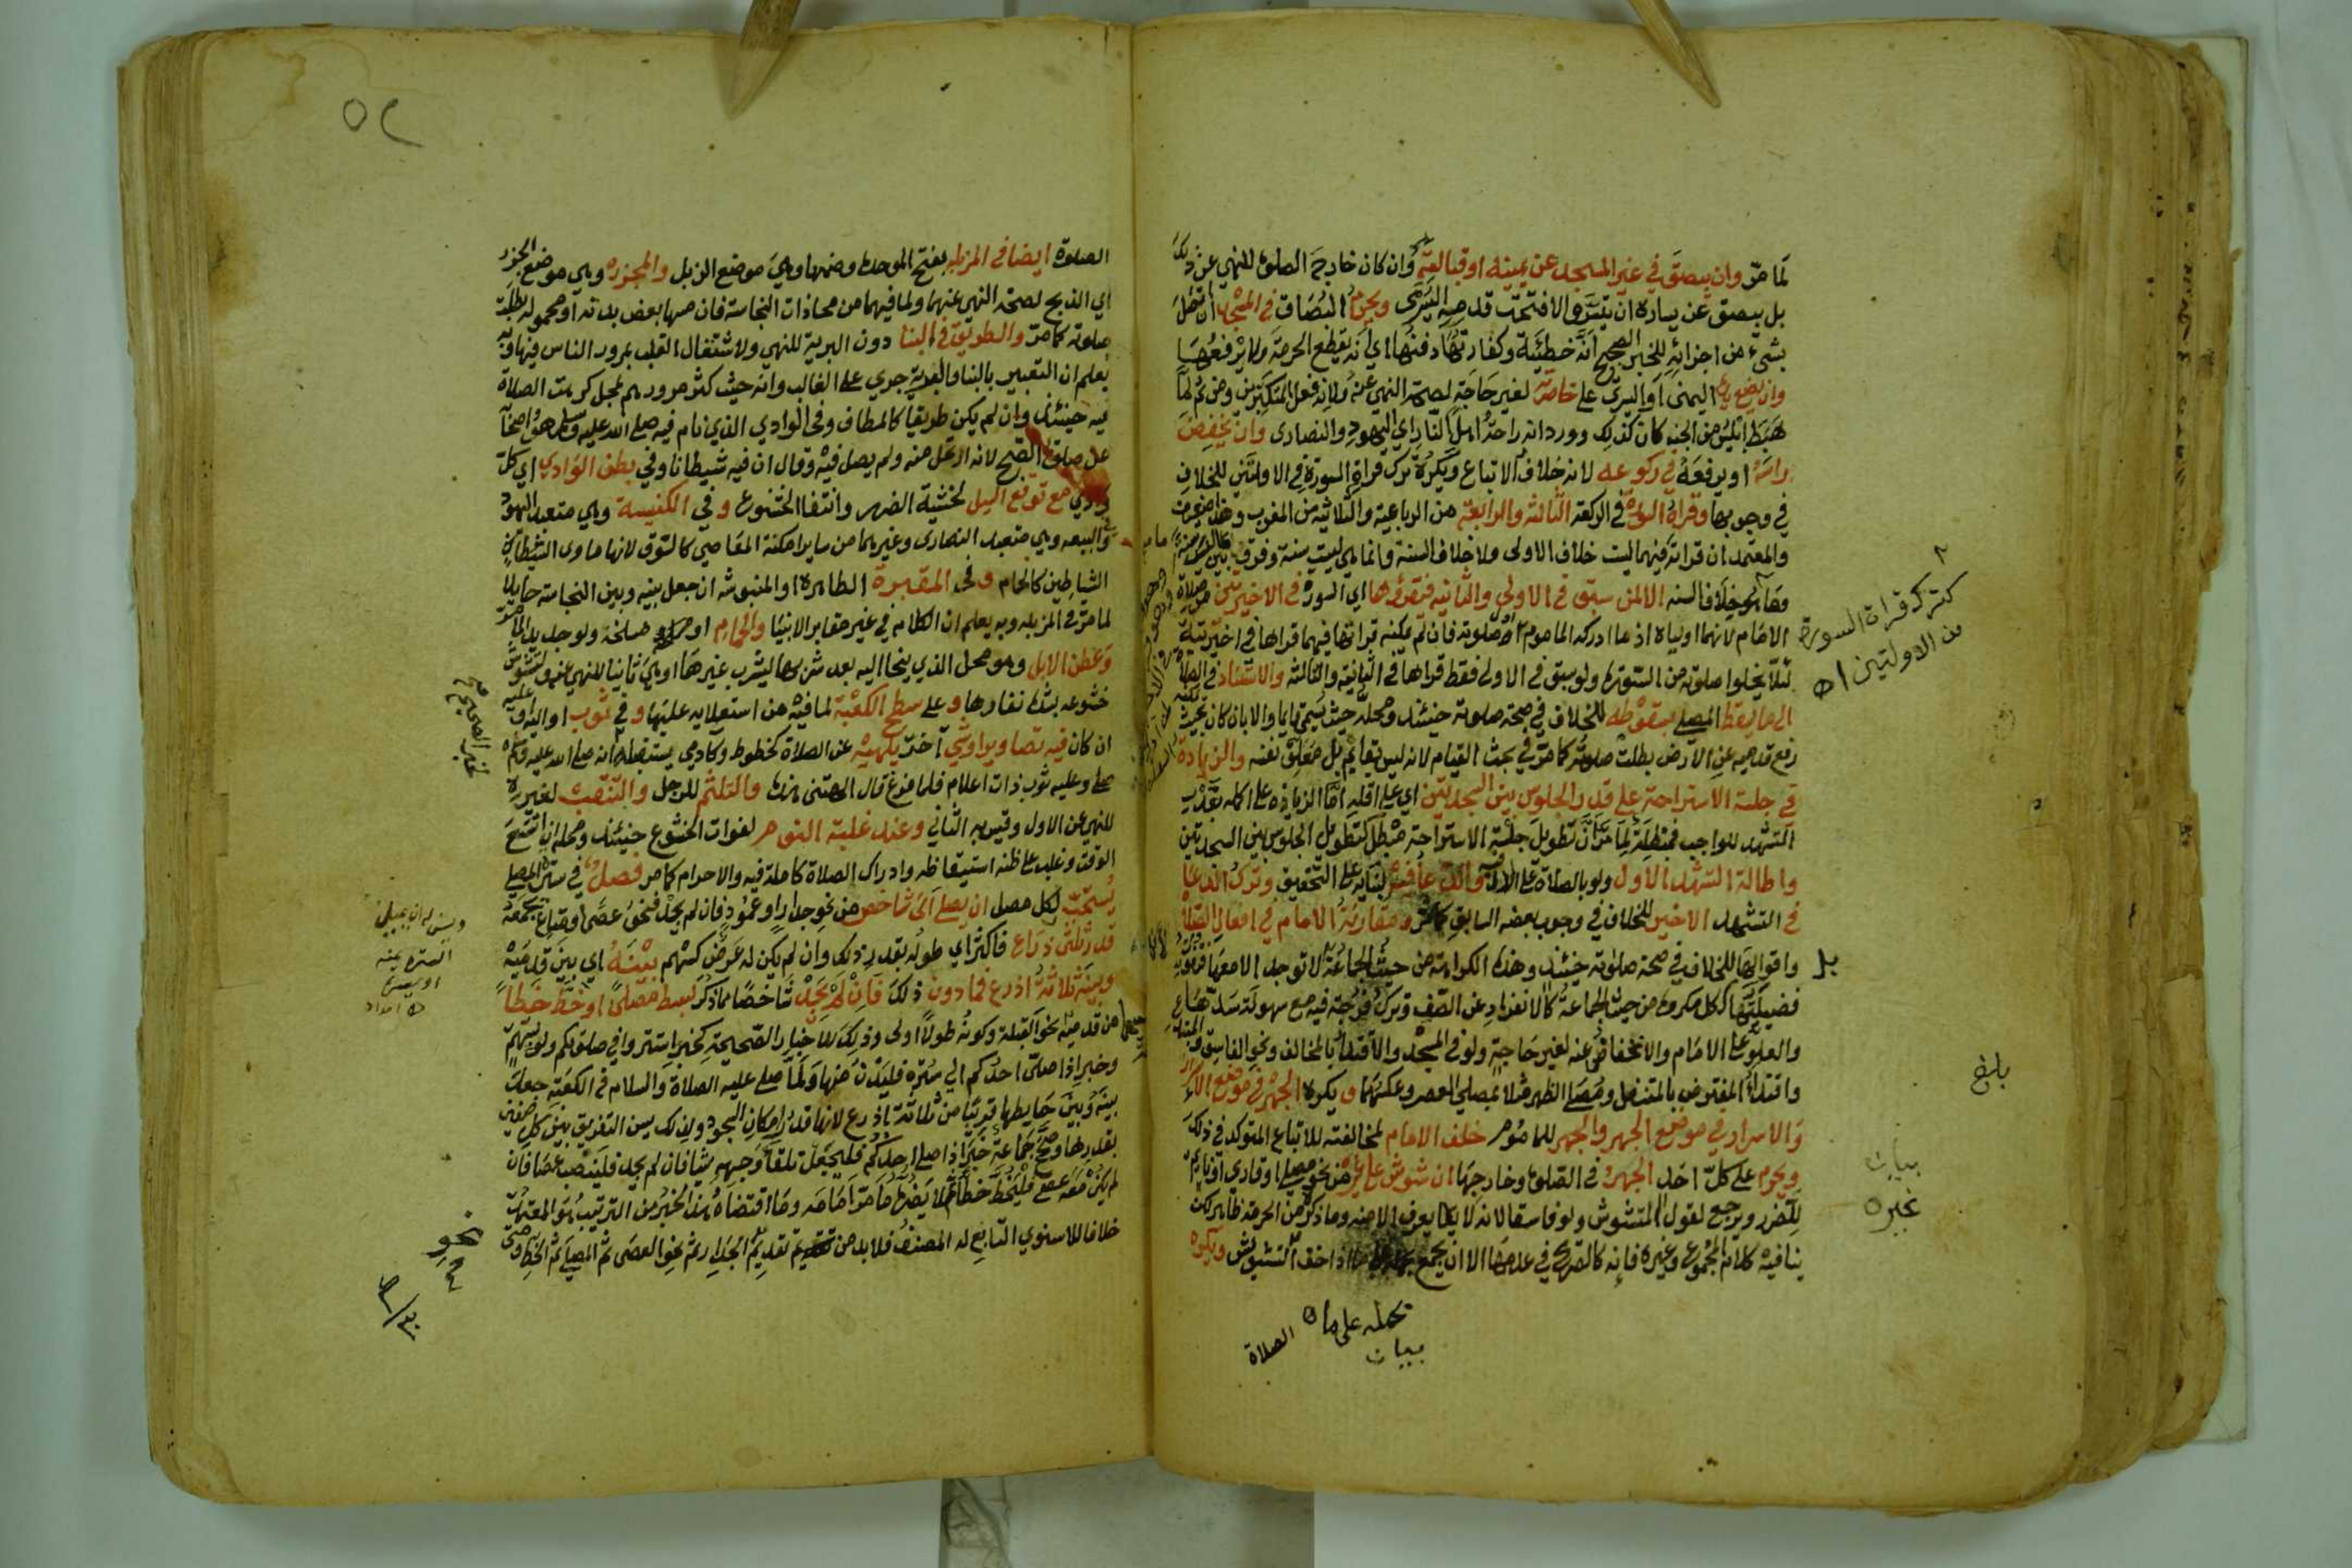 لما مرّ وان يبصق في غير المسجد عن يمينه او قبالته وان كان خارج الصلوة للنهي عن ذلك
بل يبصق عن يساره ان تيسر والا فتحت قدمه اليسرى ويحرم البصاق في المسجد ان اتصل
بشيء من اجزائه للخبر الصحيح انه خطيئة وكفارتها دفنها اي انه يقطع الحرمة ولا يرفعها
وان يضع يده اليمنى او اليسرى على خاصرته لغير حاجة لصحة النهي عنه ولانه فعل المتكبرين ومن ثم لما
هبط ابليس من الجنة كان كذلك وورد انه راحة اهل النار اي اليهود والنصارى وان يخفض
راسه او يرفعه في ركوعه لانه خلاف الاتباع ويكره ترك قراءة السورة في الاولتين للخلاف
في وجوبها وقراة السورة في الركعة الثالثة والرابعة من الرباعية والثلاثية من المغرب وهذا
والمعتمد ان قراته فيهما ليست خلاف الاولى ولا خلاف السنة وانما هي ليست بسنة وفرق بين
وما هو خلاف السنه الا لمن سبق في الاولى والثانيه فيقرؤها اي السورة في الاخيرتين من صلاة
الامام لانهما اولياه اذ ما ادركه الماموم اول صلوته فان لم يمكنه قراتها فيهما قراها في اخيرتيه
لئلا يخلوا صلوته من السورة ولو سبق في الاولى فقط قراها في الثانية والثالثة والاستناد في الصلاة
الى ما يسقط المصلي بسقوطه للخلاف في صحة صلوته حينئذ ومحله حيث يسمى قايما والا بان كان بحيث يمكنه
رفع قدميه عن الارض بطلت صلوته كما مر في بحث القيام لانه ليس بقايم بل معلق نفسه والزيادة
في جلسة الاستراحة على قدر الجلوس بين السجدتين اي على اقله اما الزيادة على اكمله بقدر
التشهد الواجب فمبطلة لما مر ان تطويل جلسة الاستراحة مبطل كتطويل الجلوس بين السجدتين
واطالة التشهد الاول ولو بالصلاة على الآل والدعا فيه لبنائه على التخفيف وترك الدعا
في التشهد الاخير للخلاف في وجوب بعضه السابق كما مر ومقارنة الامام في افعال الصلاة
واقوالها للخلاف في صحة صلوته حينئذ وهذه الكراهة من حيث الجماعة لا توجد الا معها
فضيلتها ككل مكروه من حيث الجماعة كالانفراد عن الصف وترك فرجة فيه مع سهولة سدها
والعلو على الامام والانخفاض عنه لغير حاجة ولو في المسجد والاقتداء بالمخالف ونحو الفاسق والمبتدع
واقتداء المفترض بالمتنفل ومصلي الظهر مثلا بمصلي العصر وعكسهما ويكره الجهر في موضع الاسرار
والاسرار في موضع الجهر والجهر للماموم خلف الامام لمخالفته للاتباع المتوكد في ذلك
ويحرم على كل احد الجهر في الصلوة وخارجها ان شوش على غيره من نحو مصل او قاري او نايم
للضرر ويرجع لقول المتشوش ولو فاسقا لانه لا يعرف الا منه وما ذكر من الحرمة ظاهر لكن
ينافيه كلام المجموع وغيره فانه كالصريح في عدمها الا ان يجمع اذا خف التشويش ويكره
كترك قراة السورة
من الاولتين اه
بل
بلغ
بيان
غيره
بحمله على ما ه
بيان
الصلاة
٥٢
الصلوة ايضا في المزبلة بفتح الموحدة وضمها وهي موضع الزبل والمجزرة وهي موضع الجزر
اي الذبح لصحة النهي عنهما ولما فيهما من محاذات النجاسة فان مسها بعض بدنه او محموله بطلت
صلوته كما مر والطريق في البنا دون البرية للنهي ولاشتغال القلب بمرور الناس فيها وبه
يعلم ان التعبير بالبنا والبرية جري على الغالب وانه حيث كثر مرورهم بمحل كرهت الصلاة
فيه حينئذ وان لم يكن طريقا كالمطاف وفي الوادي الذي نام فيه صلى الله عليه وسلم هو واصحابه
عن صلوة الصبح لانه ارتحل منه ولم يصل فيه وقال ان فيه شيطانا وفي بطن الوادي اي كل
وادي مع توقع السيل لخشية الضرر وانتفا الخشوع وفي الكنيسة وهي متعبد اليهود
والبيعه وهي متعبد النصارى وغيرهما من ساير امكنة المعاصي كالسوق لانها ماوى الشياطين
الشياطين كالحمام وفي المقبرة الطاهرة او المنبوشة ان جعل بينه وبين النجاسة حايلا
لما مر في المزبلة وبه يعلم ان الكلام في غير مقابر الانبيا والحمام او مسلخه ولو جديدا لما مر
وعطن الابل وهو محل الذي ينحا اليه بعد شربها ليشرب غيرها او هي ثانيا للنهي عنه ولتشوش
خشوعه بشدة نفارها وعلى سطح الكعبة لما فيه من استعلايه عليها وفي ثوب او اليه او عليه
ان كان فيه تصاوير او شي آخر يلهيه عن الصلاة كخطوط وكادمي يستقبله لانه صلى الله عليه وسلم
صلى وعليه ثوب ذات اعلام فلما فرغ قال الهتني هذه والتلثم للرجل والتنقب لغيره
للنهي عن الاول وقيس به الثاني وعند غلبة النوم لفوات الخشوع حينئذ ومحله ان اتسع
الوقت وغلب على ظنه استيقاظه وادراك الصلاة كاملة فيه والا حرم كما مر فصل في سترة المصلي
يستحب لكل مصل ان يصلي الى شاخص من نحو جدار او عمود فان لم يجد فنحو عصى ومتاع يجمعه
قدر ثلثي ذراع فاكثر اي طوله بقدر ذلك وان لم يكن له عرض كسهم بينه اي بين قدميه
وبينه ثلاثة اذرع فما دون ذلك فان لم يجد شاخصا مما ذكر بسط مصلى او خط خطا
من قدميه نحو القبلة وكونه طولا اولى وذلك للاخبار الصحيحة كخبر استتروا في صلوتكم ولو بسهم
وخبر اذا صلى احدكم الي سترة فليدن منها ولما صلى عليه الصلاة والسلام في الكعبة جعلت
بينه وبين حايطها قريبا من ثلاثة اذرع لانها قدر امكان السجود ولذلك يسن التفريق بين كل صفين
بقدرها وصح جماعة خبر اذا صلى احدكم فليجعل تلقاء وجهه شيا فان لم يجد فلينصب عصا فان
لم يكن معه عصى فليخط خطا ثم لا يضره ما مر امامه وما اقتضاه هذا الخبر من الترتيب هو المعتمد
خلافا للاسنوي التابع له المصنف فلا بد من تقديم الجدار ثم نحو العصى ثم المصلى ثم الخط ومتى
لخبر الصحيح
ويسن له ان يميل
السترة عنه
او يسرة
ه امداد
نحو